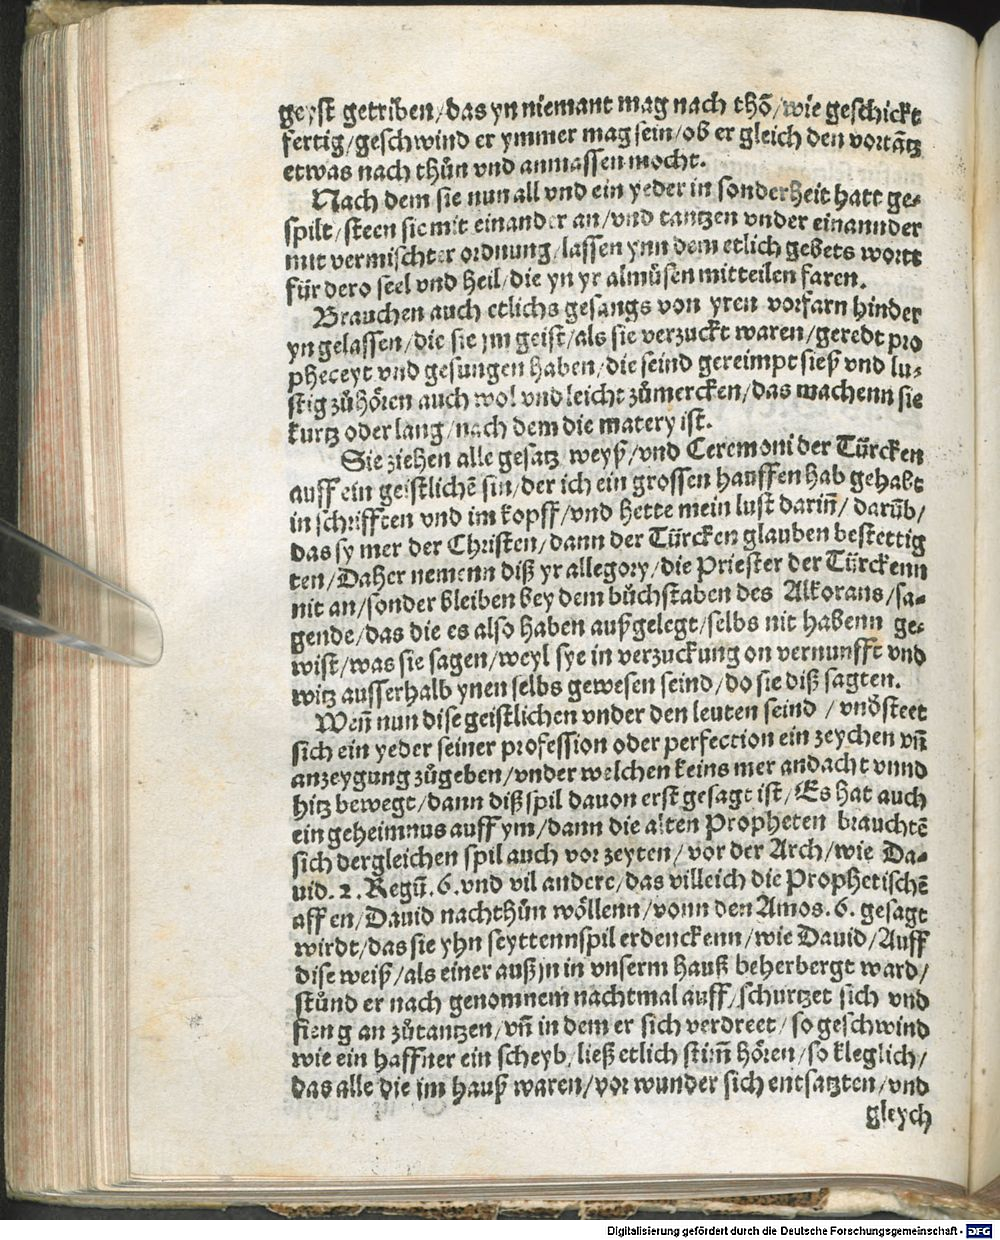 geyst getriben/das yn niemant mag nach thō/wie geschickt
fertig/geschwind er ymmer mag sein/ob er gleich den vortātz
etwas nach thůn vnd anmassen mocht.
Nach dem sie nun all vnd ein yeder in sonderheit hatt ge⸗
spilt/steen sie mit einander an/vnd tantzen vnder einannder
mit vermischter ordnung/lassen ynn dem etlich gebets wortt
für dero seel vnd heil/die yn yr almůsen mitteilen faren.
Brauchen auch etlichs gesangs von yren vorfarn hinder
yn gelassen/die sie jm geist/als sie verzuckt waren/geredt pro
pheceyt vnd gesungen haben/die seind gereimpt sieß vnd lu⸗
stig zůhören auch wol vnd leicht zůmercken/das machenn sie
kurtz oder lang/nach dem die matery ist.
Sie ziehen alle gesatz weyß/vnd Ceremoni der Türcken
auff ein geistlichē sin/der ich ein grossen hauffen hab gehabt
in schrifften vnd im kopff/vnd hette mein lust darin̄/darūb/
das sy mer der Christen/dann der Türcken glauben bestettig
ten/Daher nemenn diß yr allegory/die Priester der Türckenn
nit an/sonder bleiben bey dem bůchstaben des Alkorans/sa⸗
gende/das die es also haben außgelegt/selbs nit habenn ge⸗
wist/was sie sagen/weyl sye in verzuckung on vernunfft vnd
witz ausserhalb ynen selbs gewesen seind/do sie diß sagten.
Wen̄ nun dise geistlichen vnder den leuten seind/vnd̄steet
sich ein yeder seiner profession oder perfection ein zeychen vn̄
anzeygung zůgeben/vnder welchen keins mer andacht vnnd
hitz bewegt/dann diß spil dauon erst gesagt ist/Es hat auch
ein geheimnus auff ym/dann die alten Propheten brauchtē
sich dergleichen spil auch vor zeyten/vor der Arch/wie Da⸗
uid.2.Regū.6.vnd vil andere/das villeich die Prophetischē
affen/Dauid nachthůn wöllenn/vonn den Amos.6.gesagt
wirdt/das sie yhn seyttennspil erdenckenn/wie Dauid/Auff
dise weiß/als einer auß jn in vnserm hauß beherbergt ward/
stůnd er nach genomnem nachtmal auff/schurtzet sich vnd
fieng an zůtantzen/vn̄ in dem er sich verdreet/so geschwind
wie ein haffner ein scheyb/ließ etlich stim̄ hören/so kleglich/
das alle die im hauß waren/vor wunder sich entsatzten/vnd
gleych
Digitalisierung gefördert durch die Deutsche Forschungsgemeinschaft - DFG